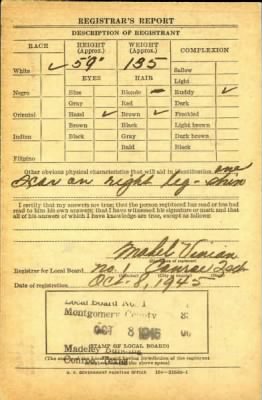 REGISTRAR'S REPORT
DESCRIPTION OF REGISTRANT
RACE HEIGHT (Approx.) WEIGHT (Approx.) COMPLEXION
White ✓ 5'9" 135 Sallow
EYES HAIR Light
Negro Blue Blonde Ruddy ✓
Gray Red Dark
Oriental Hazel ✓ Brown ✓ Freckled
Brown Black Light brown
Indian Black Gray Dark brown
Bald Black
Filipino
Other obvious physical characteristics that will aid in identification one
Scar on right leg - shin
I certify that my answers are true; that the person registered has read or has had read to him his own answers; that I have witnessed his signature or mark and that all of his answers of which I have knowledge are true, except as follows:
Mabel Vinian
Registrar for Local Board No. 1 Conroe
Date of registration Oct. 8, 1945
Local Board No. 1
Montgomery County
OCT 8 1945
(STAMP OF LOCAL BOARD)
Madeley Building
Conroe, Texas
U. S. GOVERNMENT PRINTING OFFICE